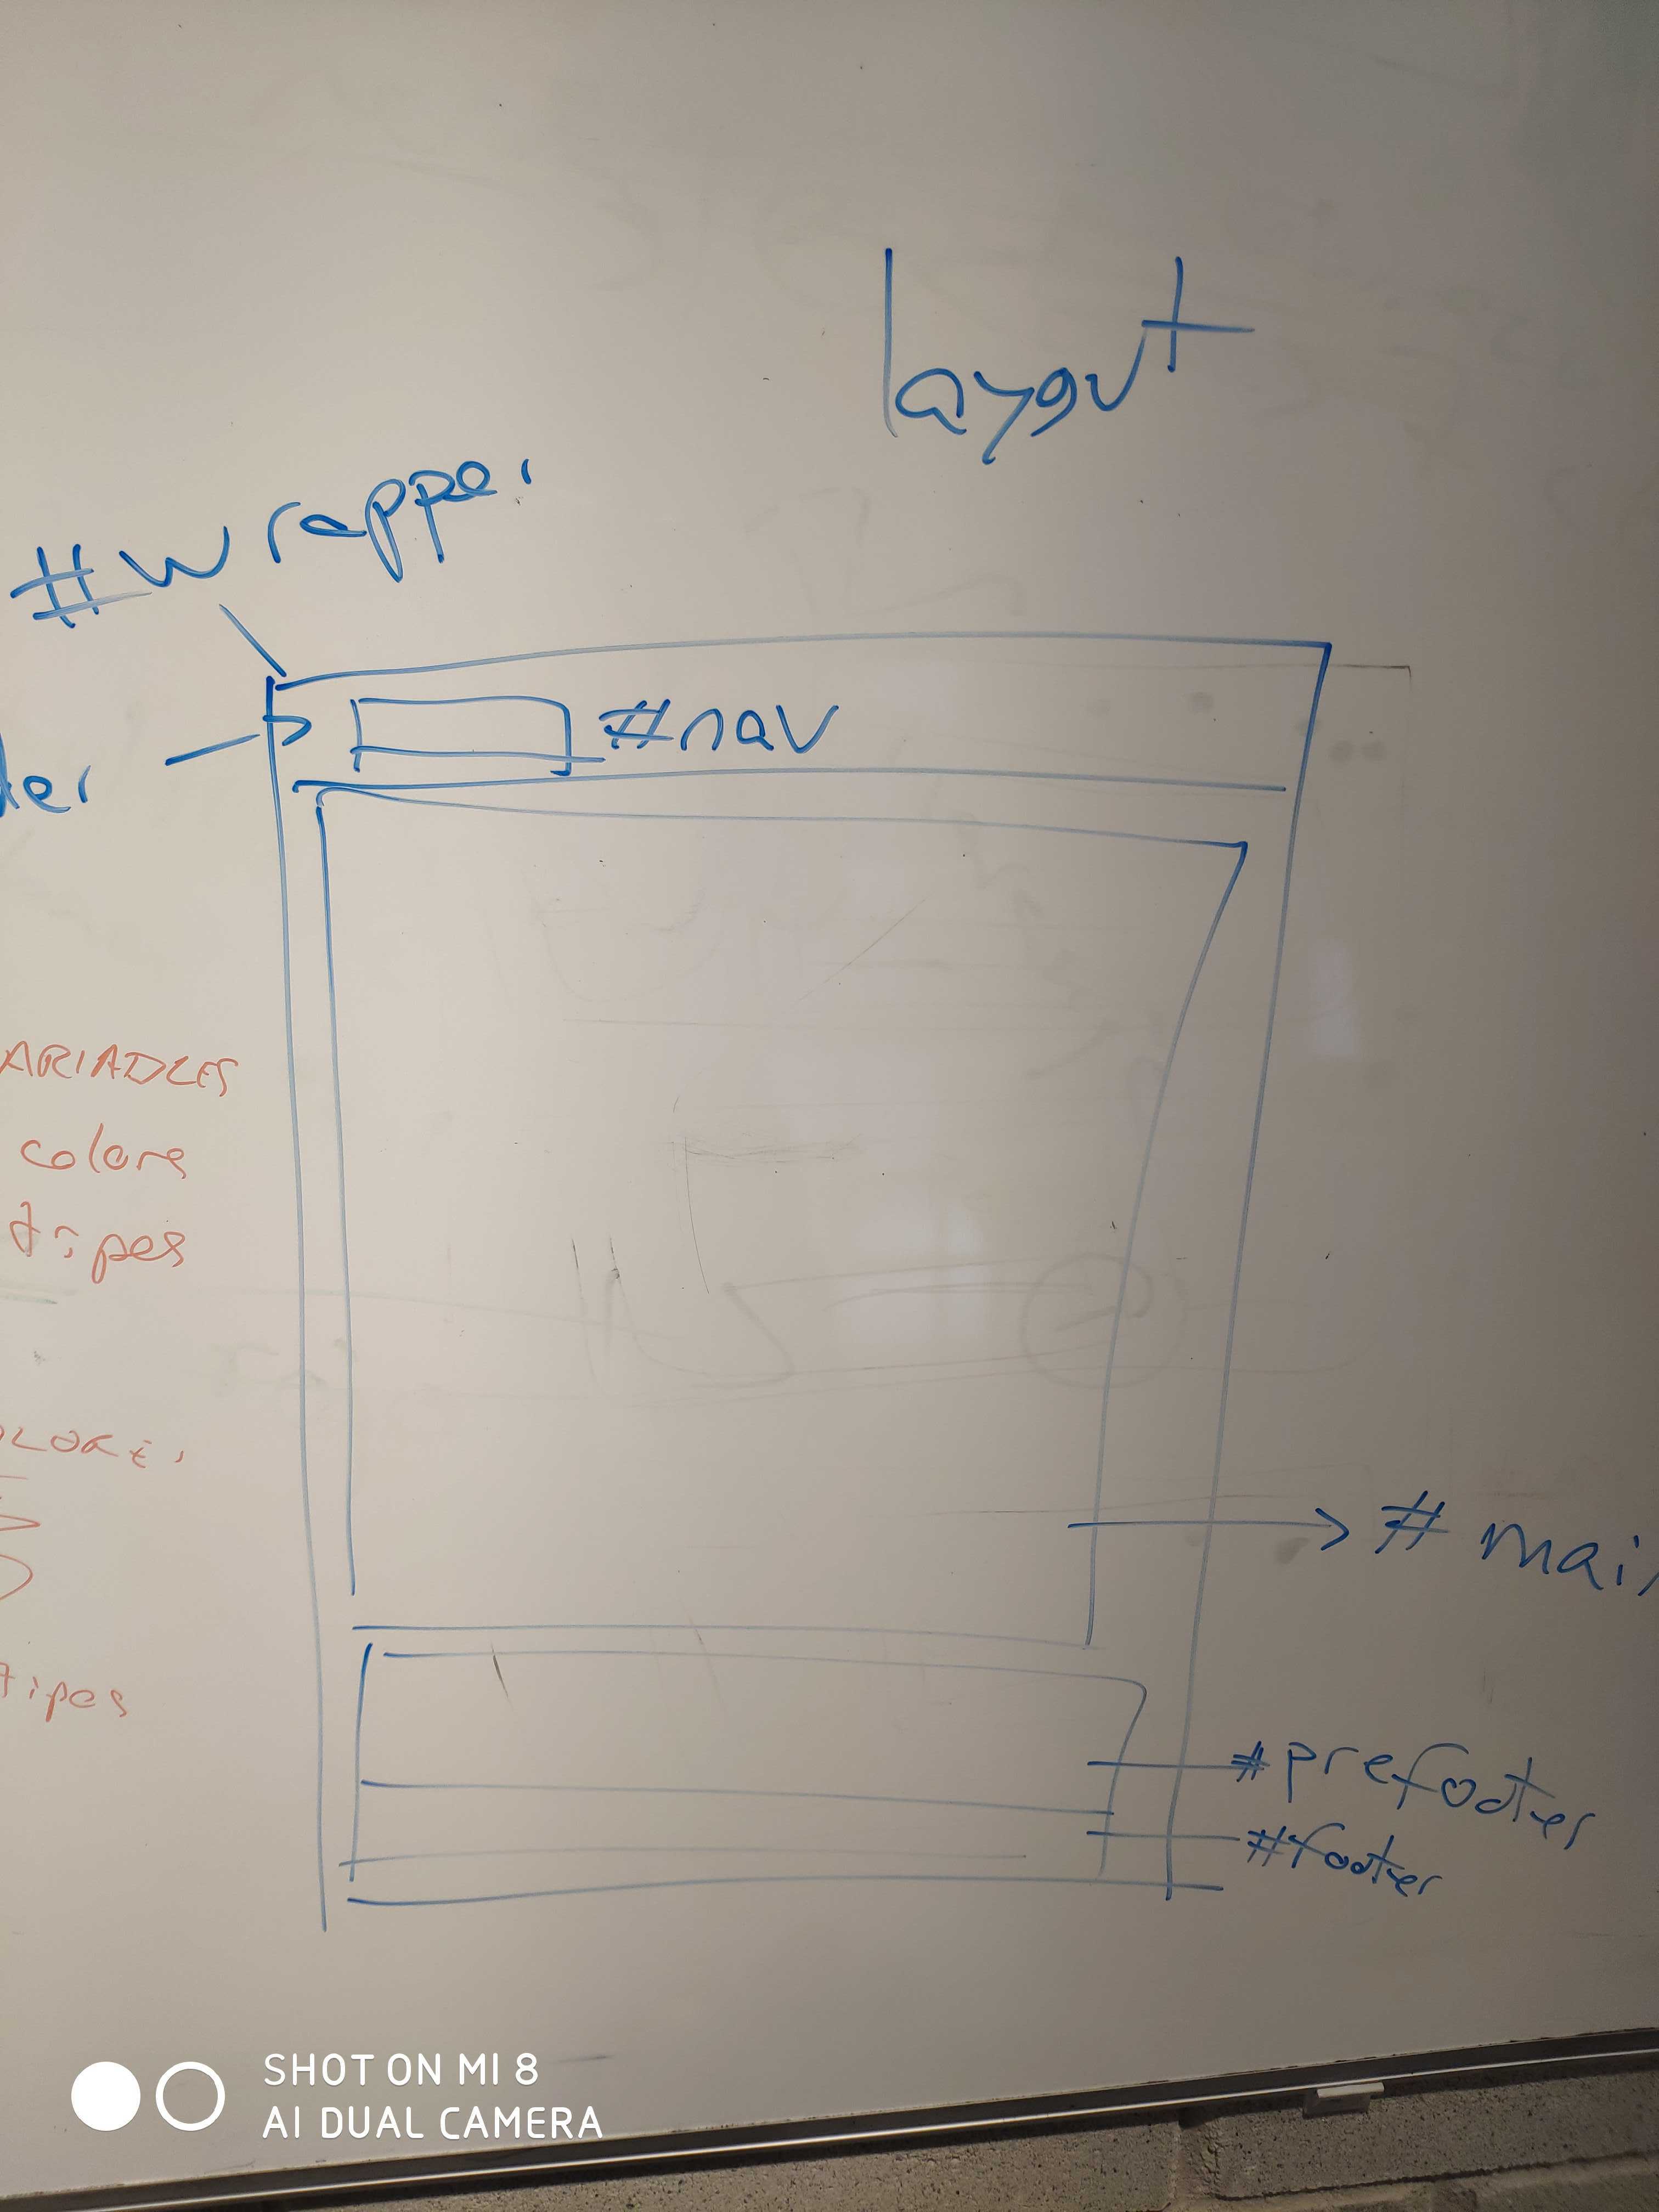 layout
#wrapper
#nav
der
ARIABLES
colors
tipes
tipes
# main
#prefooter
#footer
SHOT ON MI 8
AI DUAL CAMERA